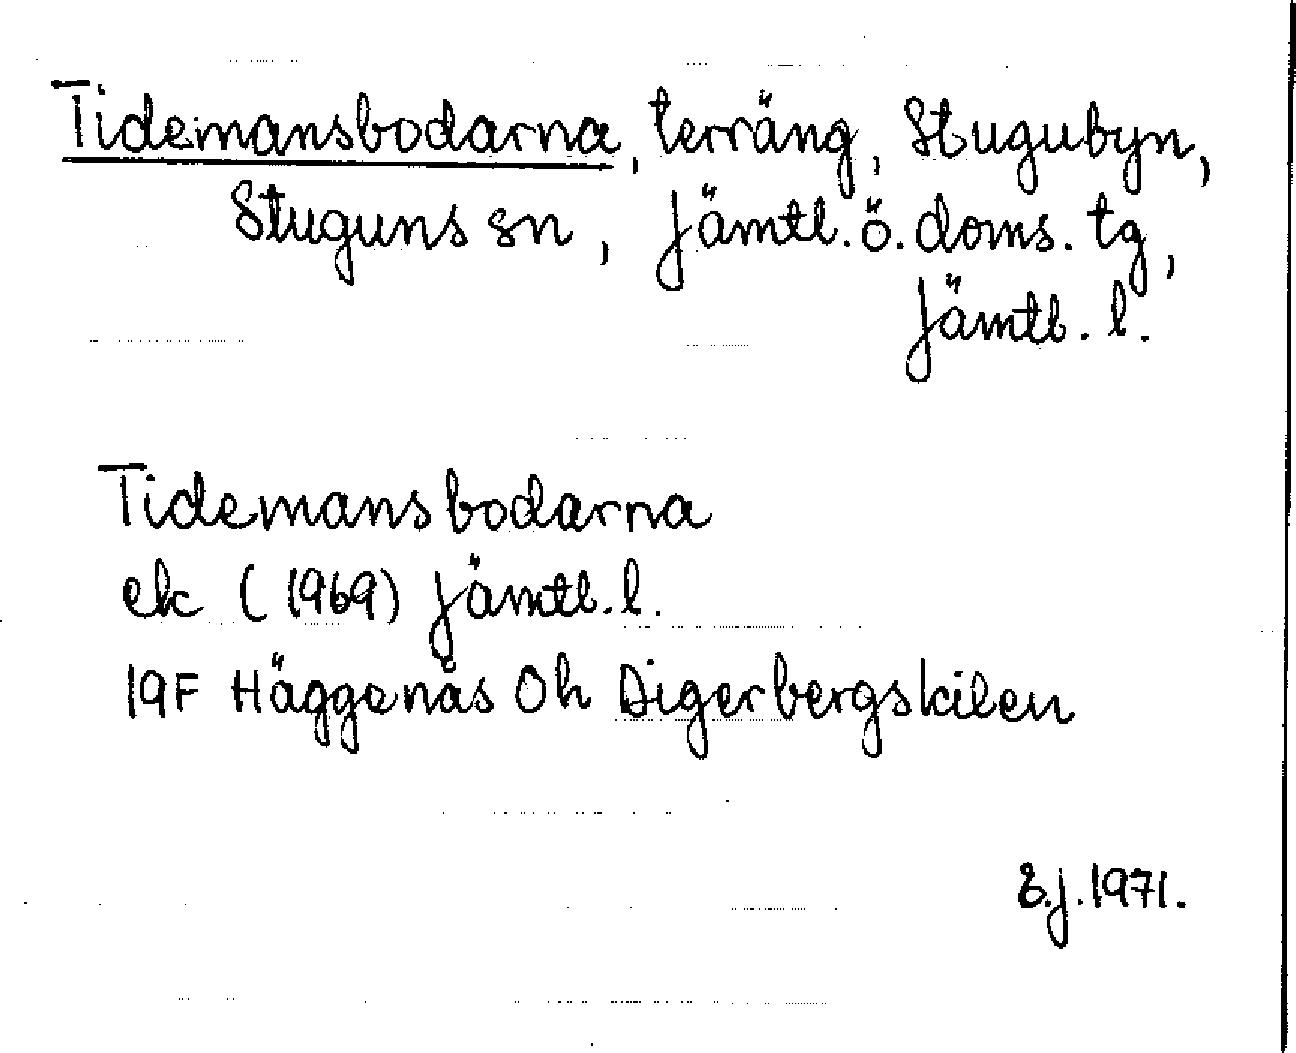 Tidemansbodarna, terräng, Stugubyn,
Stuguns sn, Jämtl. ö. doms. tg,
Jämtl. l.
Tidemansbodarna
ek (1969) Jämtl. l.
19F Häggenås Oh Digerbergskilen
E.J. 1971.